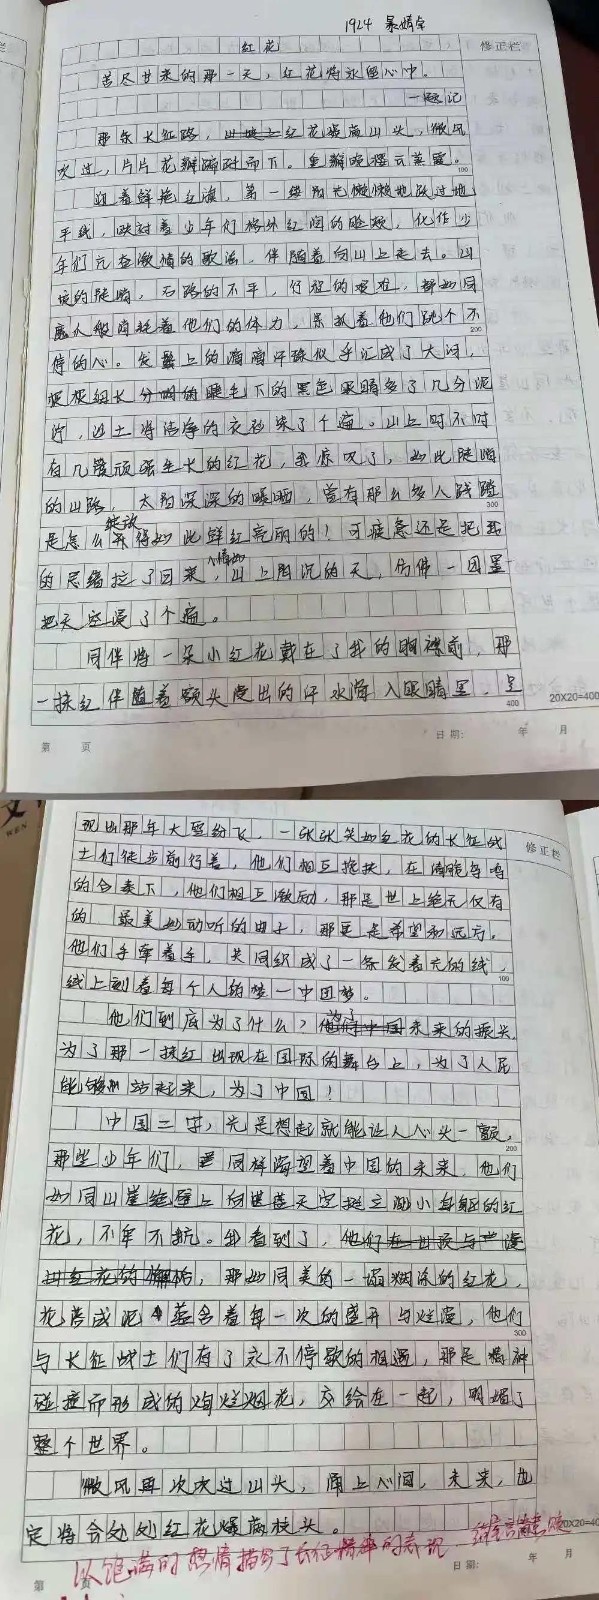 1924 景婧卓
红花
修正栏
苦尽甘来的那一天，红花将永留心中。
—题记
那条长红路，红花塬满山头，微风
吹过，片片花瓣随之而下。重瓣晚樱云蒸霞。
100
迎着鲜艳红旗，第一缕阳光懒懒地跃过地
平线，映衬着少年们格外红润的脸颊，化作少
年们亢奋激情的歌谣，伴随着向山上走去。山
坡的陡峭，石路的不平，行程的艰难，都如同
恶人般消耗着他们的体力，亲抓着他们跳个不
200
停的心。发鬓上的滴滴汗珠似乎汇成了大河，
根根细长分明的睫毛下的黑色眼睛多了几分泥
泞，泥土将洁净的衣衫染了个遍。山上时不时
有几簇顽强生长的红花，我惊叹了，如此陡峭
的山路，太阳深深的曝晒，曾有那么多人践踏
300
是怎么绽放得如此鲜红亮丽的！可疲惫还是把我
的思绪拉了回来，山上阴沉的天，仿佛一团墨
把天空浸了个遍。
同伴将一朵小红花戴在了我的胸襟前，那
一抹红伴随着额头渗出的汗水滴入眼睛里，呈
400
20X20=400
第 页
日期: 年 月
现出那年大雪纷飞，一张张笑如红花的长征战
修正栏
士们徒步前行着，他们相互搀扶，在清脆鸟鸣
的合奏下，他们相互激励，那是世上绝无仅有
的 最美妙动听的曲子，那更是希望和远方。
他们手牵着手，共同织成了一条发着光的线，
100
线上刻着每个人的梦—中国梦。
他们到底为了什么？为了未来的振兴，
为了那一抹红出现在国际的舞台上，为了人民
能够站起来，为了中国！
中国二字，光是想起就能让人心头一颤，
200
那些少年们，同样渴望着中国的未来，他们
如同山崖绝壁上向湛蓝天空挺立渺小身躯的红
花，不卑不亢。我看到了，他们
，那如同美的一塌糊涂的红花，
花落成泥 蕴含着每一次的盛开与烂漫，他们
300
与长征战士们有了永不停歇的相遇，那是精神
碰撞而形成的绚烂烟花，交绘在一起，明媚了
整个世界。
微风再次吹过山头，涌上心间，未来，也
定将会处处红花塬满枝头。
20X20=40
以饱满的热情描写了长征精神的表现
第 页
日期: 年 月